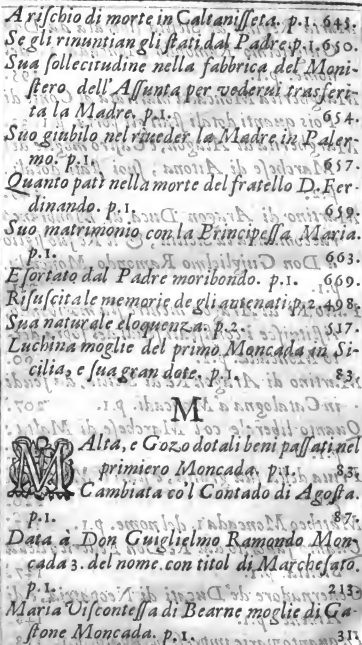 A riſchio di morte in Caltaniſſeta. p.1. 645.
Se gli rinuntian gli ſtati dal Padre.p.1.650.
Sua ſollecitudine nella fabbrica del Moni-
ſtero dell'Aſſunta per vederui trasferi-
ta la Madre. p.1. 654.
Suo giubilo nel riueder la Madre in Paler-
mo. p.1. 657.
Quanto patì nella morte del fratello D.Fer-
dinando. p.1. 659.
Suo matrimonio con la Principeſſa Maria.
p.1. 663.
Eſortato dal Padre moribondo. p.1. 669.
Riſuſcita le memorie de gli antenati.p.2.498.
Sua naturale eloquenza. p.2. 517.
Luchina moglie del primo Moncada in Si-
cilia, e ſua gran dote. p.1. 83.
M
MAlta, e Gozo dotali beni paſſati nel
primiero Moncada. p.1. 83.
Cambiata co'l Contado di Agoſta.
p.1. 87.
Data à Don Guiglielmo Ramondo Mon-
cada 3. del nome con titol di Marcheſato.
p.1. 213.
Maria Viſconteſſa di Bearne moglie di Ga-
ſtone Moncada. p.1. 31.